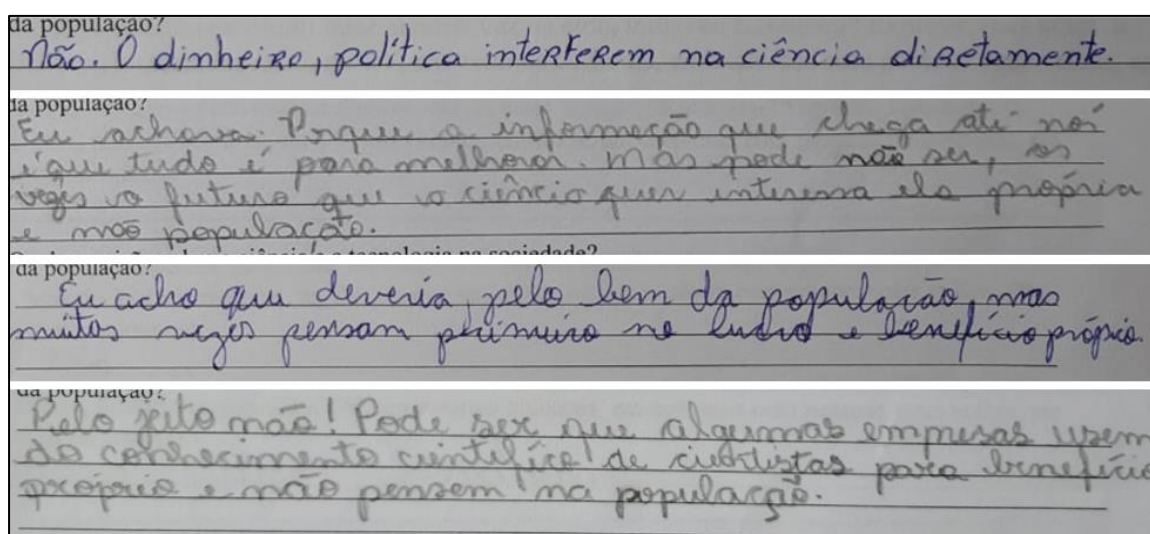 da população?
Não. O dinheiro, política interferem na ciência diretamente.
da população?
Eu achava. Porque a informação que chega até nós
é que tudo é para melhorar. Mas pode não ser, as
vezes o futuro que a ciência quer interessa ela própria
e não população.
da população?
Eu acho que deveria, pelo bem da população, mas
muitas vezes pensam primeiro no lucro e benefício próprio.
da população?
Pelo jeito não! Pode ser que algumas empresas usem
do conhecimento científico de cientistas para benefício
próprio e não pensem na população.